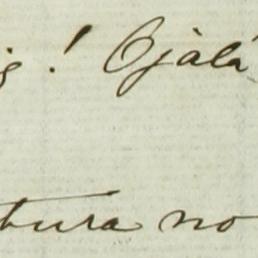 ! Ojalá
tura no